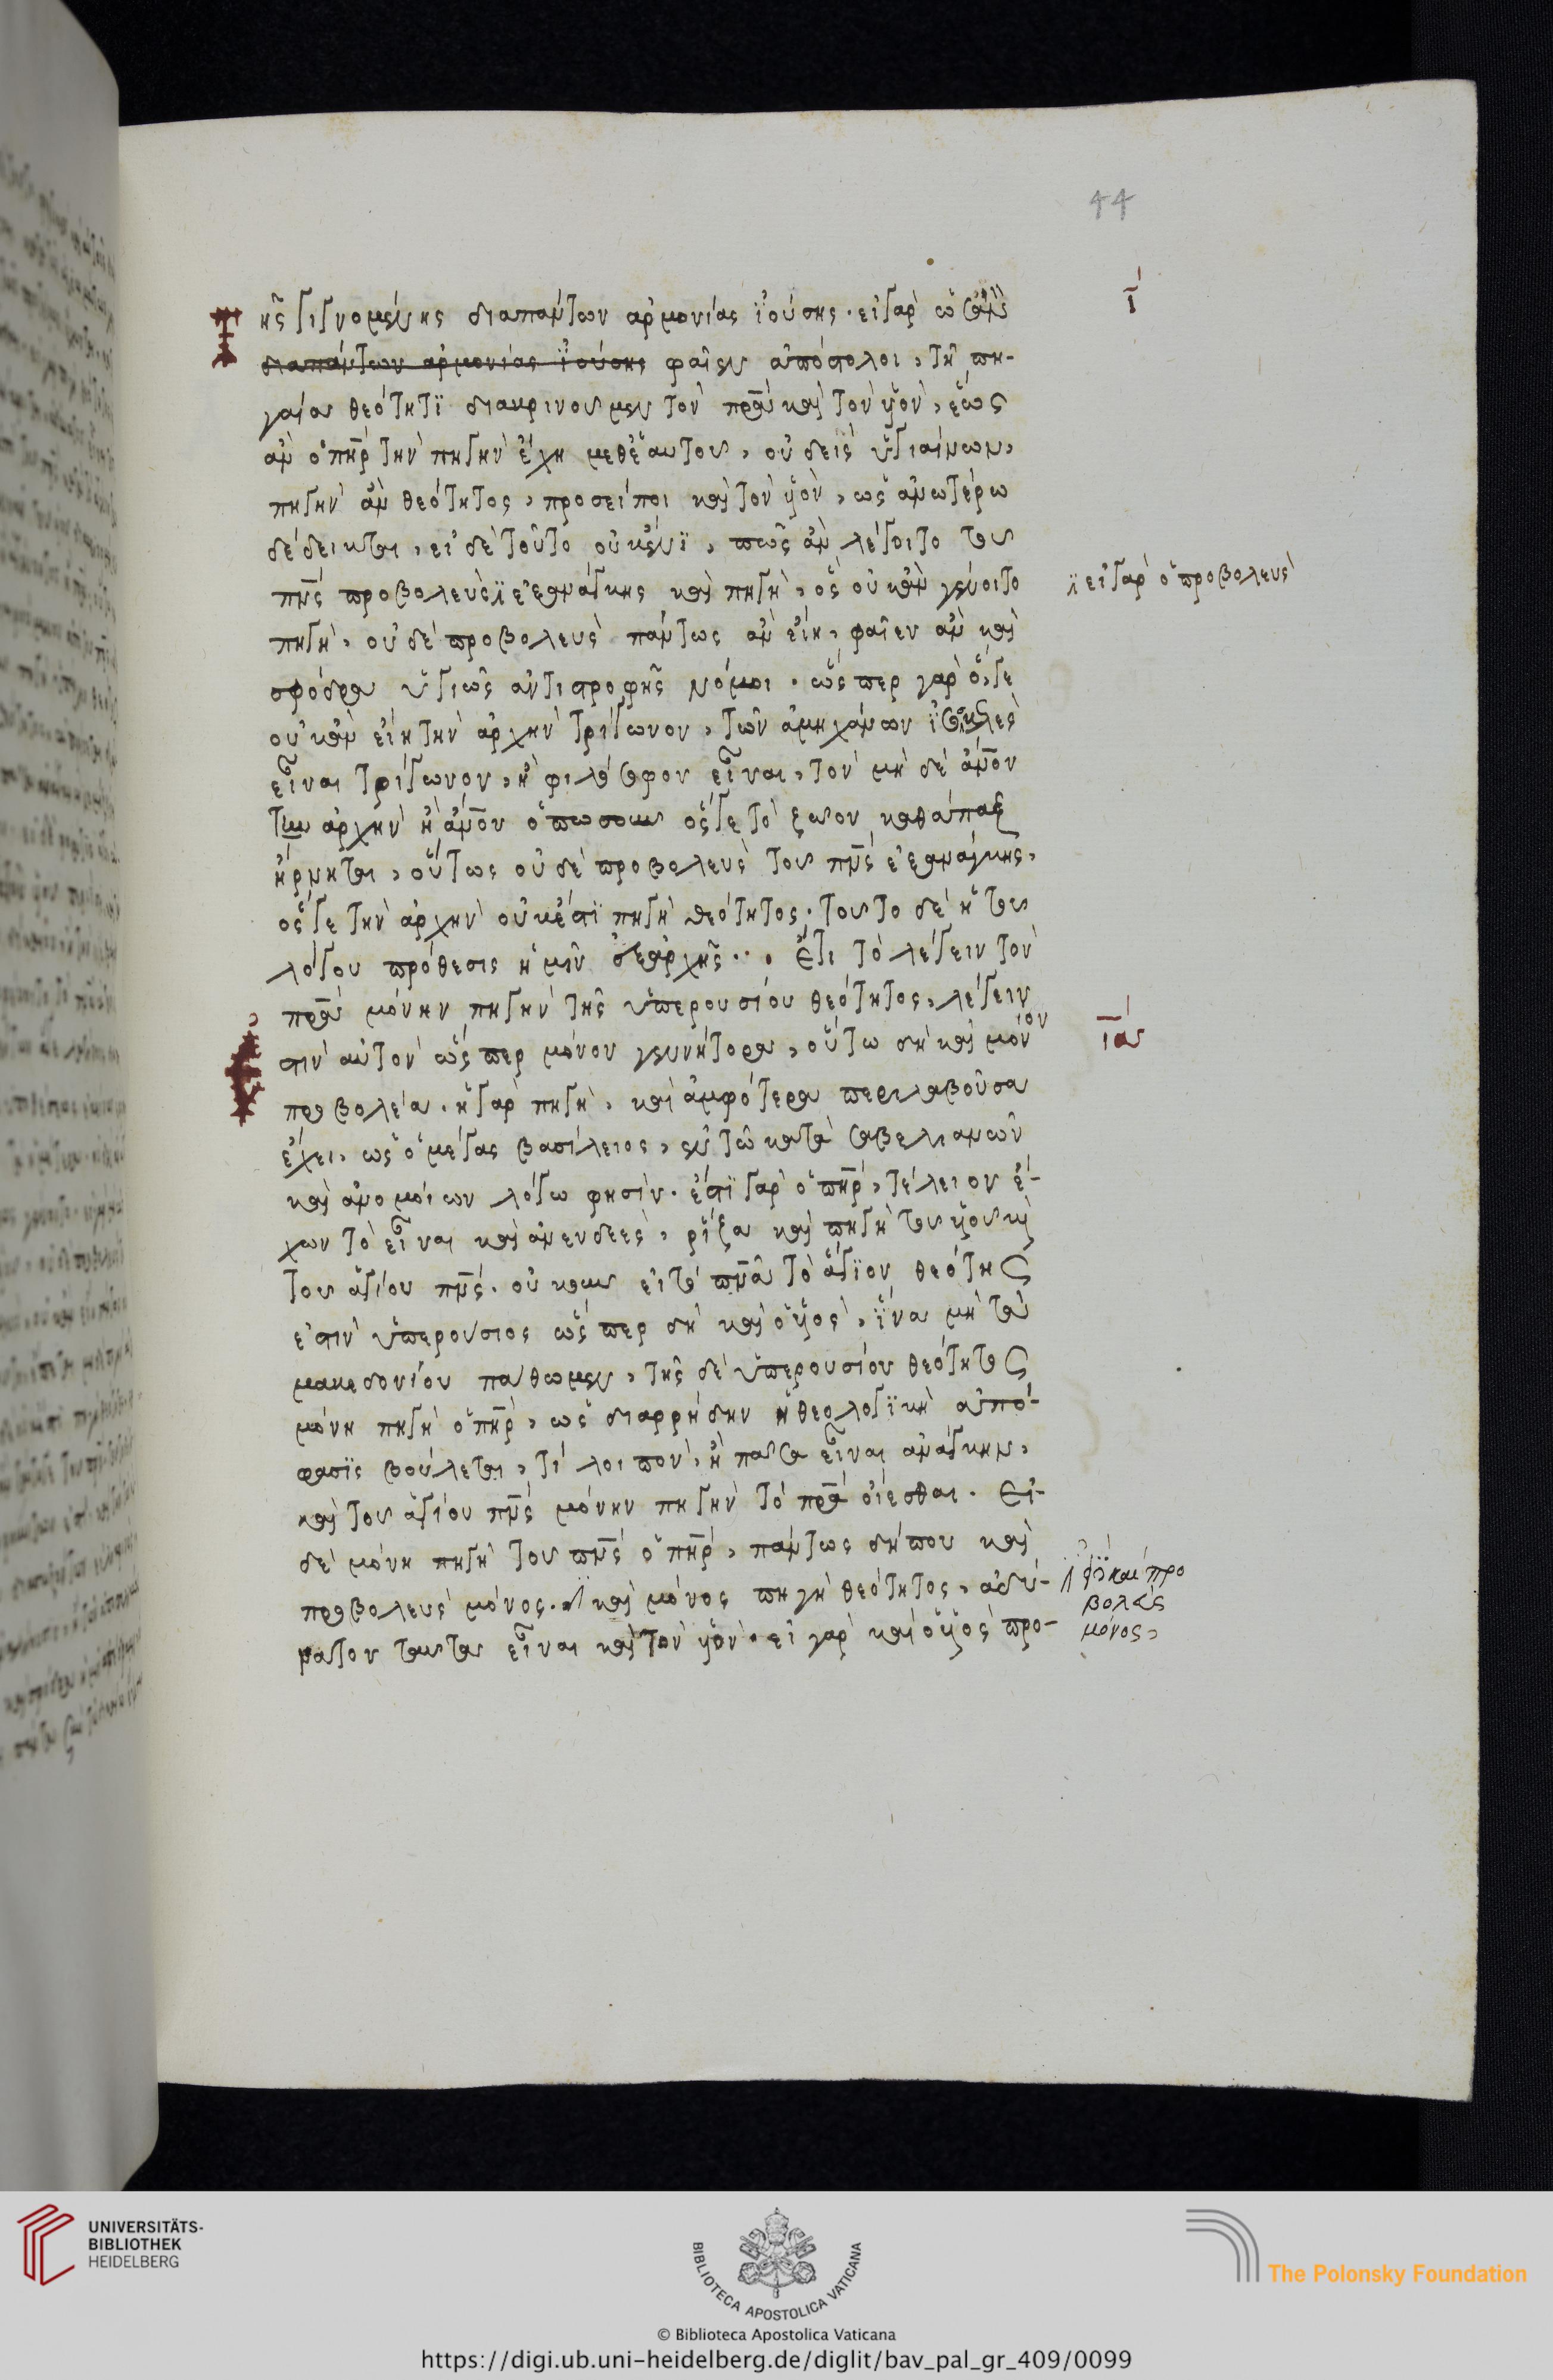 44
ῆς γιγνομένης διαπάντων ἁρμονίας ϊούσης. εἰ γὰρ ὦ
διαπάντων ἁρμονίας ϊούσης φαῖεν ἀπόστολοι, τῆ πη-
γαία θεότητϊ διακρίνουμεν τὸν πρα̅ καὶ τὸν υἱόν, ἕως
ἂν ὁ πη̅ρ τὴν πηγὴν ἔχη μεθ' ἑαυτοῦ, οὐδεὶς ὑγιαίνων,
πηγὴν ἂν θεότητος, προσείποι καὶ τὸν υἱόν, ὡς ἀνωτέρω
δέδεικται, εἰ δὲ τοῦτο οὐκ ἔνϊ, πῶς ἂν λέγοιτο τοῦ
πν̅ς προβολεὺς ἐξανάγκης καὶ πηγή, ὃς οὐκ ἂν γένοιτο
πηγή, οὐδὲ προβολεὺς πάντως ἂν εἴη, φαῖεν ἂν καὶ
σφόδρα ὑγιῶς ἀντιστροφῆς νόμοι. ὥσπερ γὰρ ὅ,γε
οὐκ ἂν εἴη τὴν ἀρχὴν τρίγωνον, τῶν ἀμηχάνων ἰσοσκελὲς
εἶναι τρίγωνον, ἢ φιλόσοφον εἶναι, τὸν μὴ δὲ ἄνον
τὴν ἀρχὴν ἢ ἄνον ὁπωσοῦν ὅς γε τὸ ζῶον καθάπαξ
ἤρνηται, οὕτως οὐδὲ προβολεὺς τοῦ πν̅ς ἐξανάγκης,
ὅς γε τὴν ἀρχὴν οὐκ ἔστϊ πηγὴ θεότητος. τοῦτο δὲ ἡ τοῦ
λόγου πρόθεσις ἡμῖν ἐξαρχῆς. Ἔτι τὸ λέγειν τὸν
πρα̅ μόνην πηγὴν τῆς ὑπερουσίου θεότητος, λέγειν
στὶν αὐτὸν ὥσπερ μόνον γεννήτορα, οὕτω δὴ καὶ μόνον
προβολέα. ἡ γὰρ πηγή, καὶ ἀμφότερα περιλαβοῦσα
ἔχει, ὡς ὁ μέγας βασίλειος, ἐν τῶ κατὰ σαβελλιανῶν
καὶ ἀνομοίων λόγω φησίν. ἔστϊ γὰρ ὁ πη̅ρ, τέλειον ἔ-
χων τὸ εἶναι καὶ ἀνενδεές, ῥίζα καὶ πηγὴ τοῦ υἱοῦ καὶ
τοῦ ἁγίου πν̅ς. οὐκοῦν εἰ τὸ πνα̅ τὸ ἅγϊον θεότης
ἐστὶν ὑπερούσιος ὥσπερ δὴ καὶ ὁ υἱός, ἵνα μὴ τὰ
μακεδονίου πάθωμεν, τῆς δὲ ὑπερουσίου θεότητος
μόνη πηγὴ ὁ πη̅ρ, ὡς διαρρήδην ἡ θεολογϊκὴ ἀπό-
φασϊς βούλεται, τί λοιπόν, ἢ πᾶσα εἶναι ἀνάγκην,
καὶ τοῦ ἁγίου πν̅ς μόνην πηγὴν τὸ πρα̅ οἴεσθαι. Εἰ-
δὲ μόνη πηγὴ τοῦ πν̅ς ὁ πη̅ρ, πάντως δήπου καὶ
προβολεὺς μόνος. καὶ μόνος πηγὴ θεότητος, ἀδύ-
νατον ταῦτα εἶναι καὶ τὸν υἱόν. εἰ γὰρ καὶ ὁ υἱὸς προ-
ι̅
εἰ γὰρ ὁ προβολεὺς
ι̅α
καὶ προ
βολεὺς
μόνος,
UNIVERSITÄTS-
BIBLIOTHEK
HEIDELBERG
BIBLIOTECA APOSTOLICA VATICANA
The Polonsky Foundation
© Biblioteca Apostolica Vaticana
https://digi.ub.uni-heidelberg.de/diglit/bav_pal_gr_409/0099